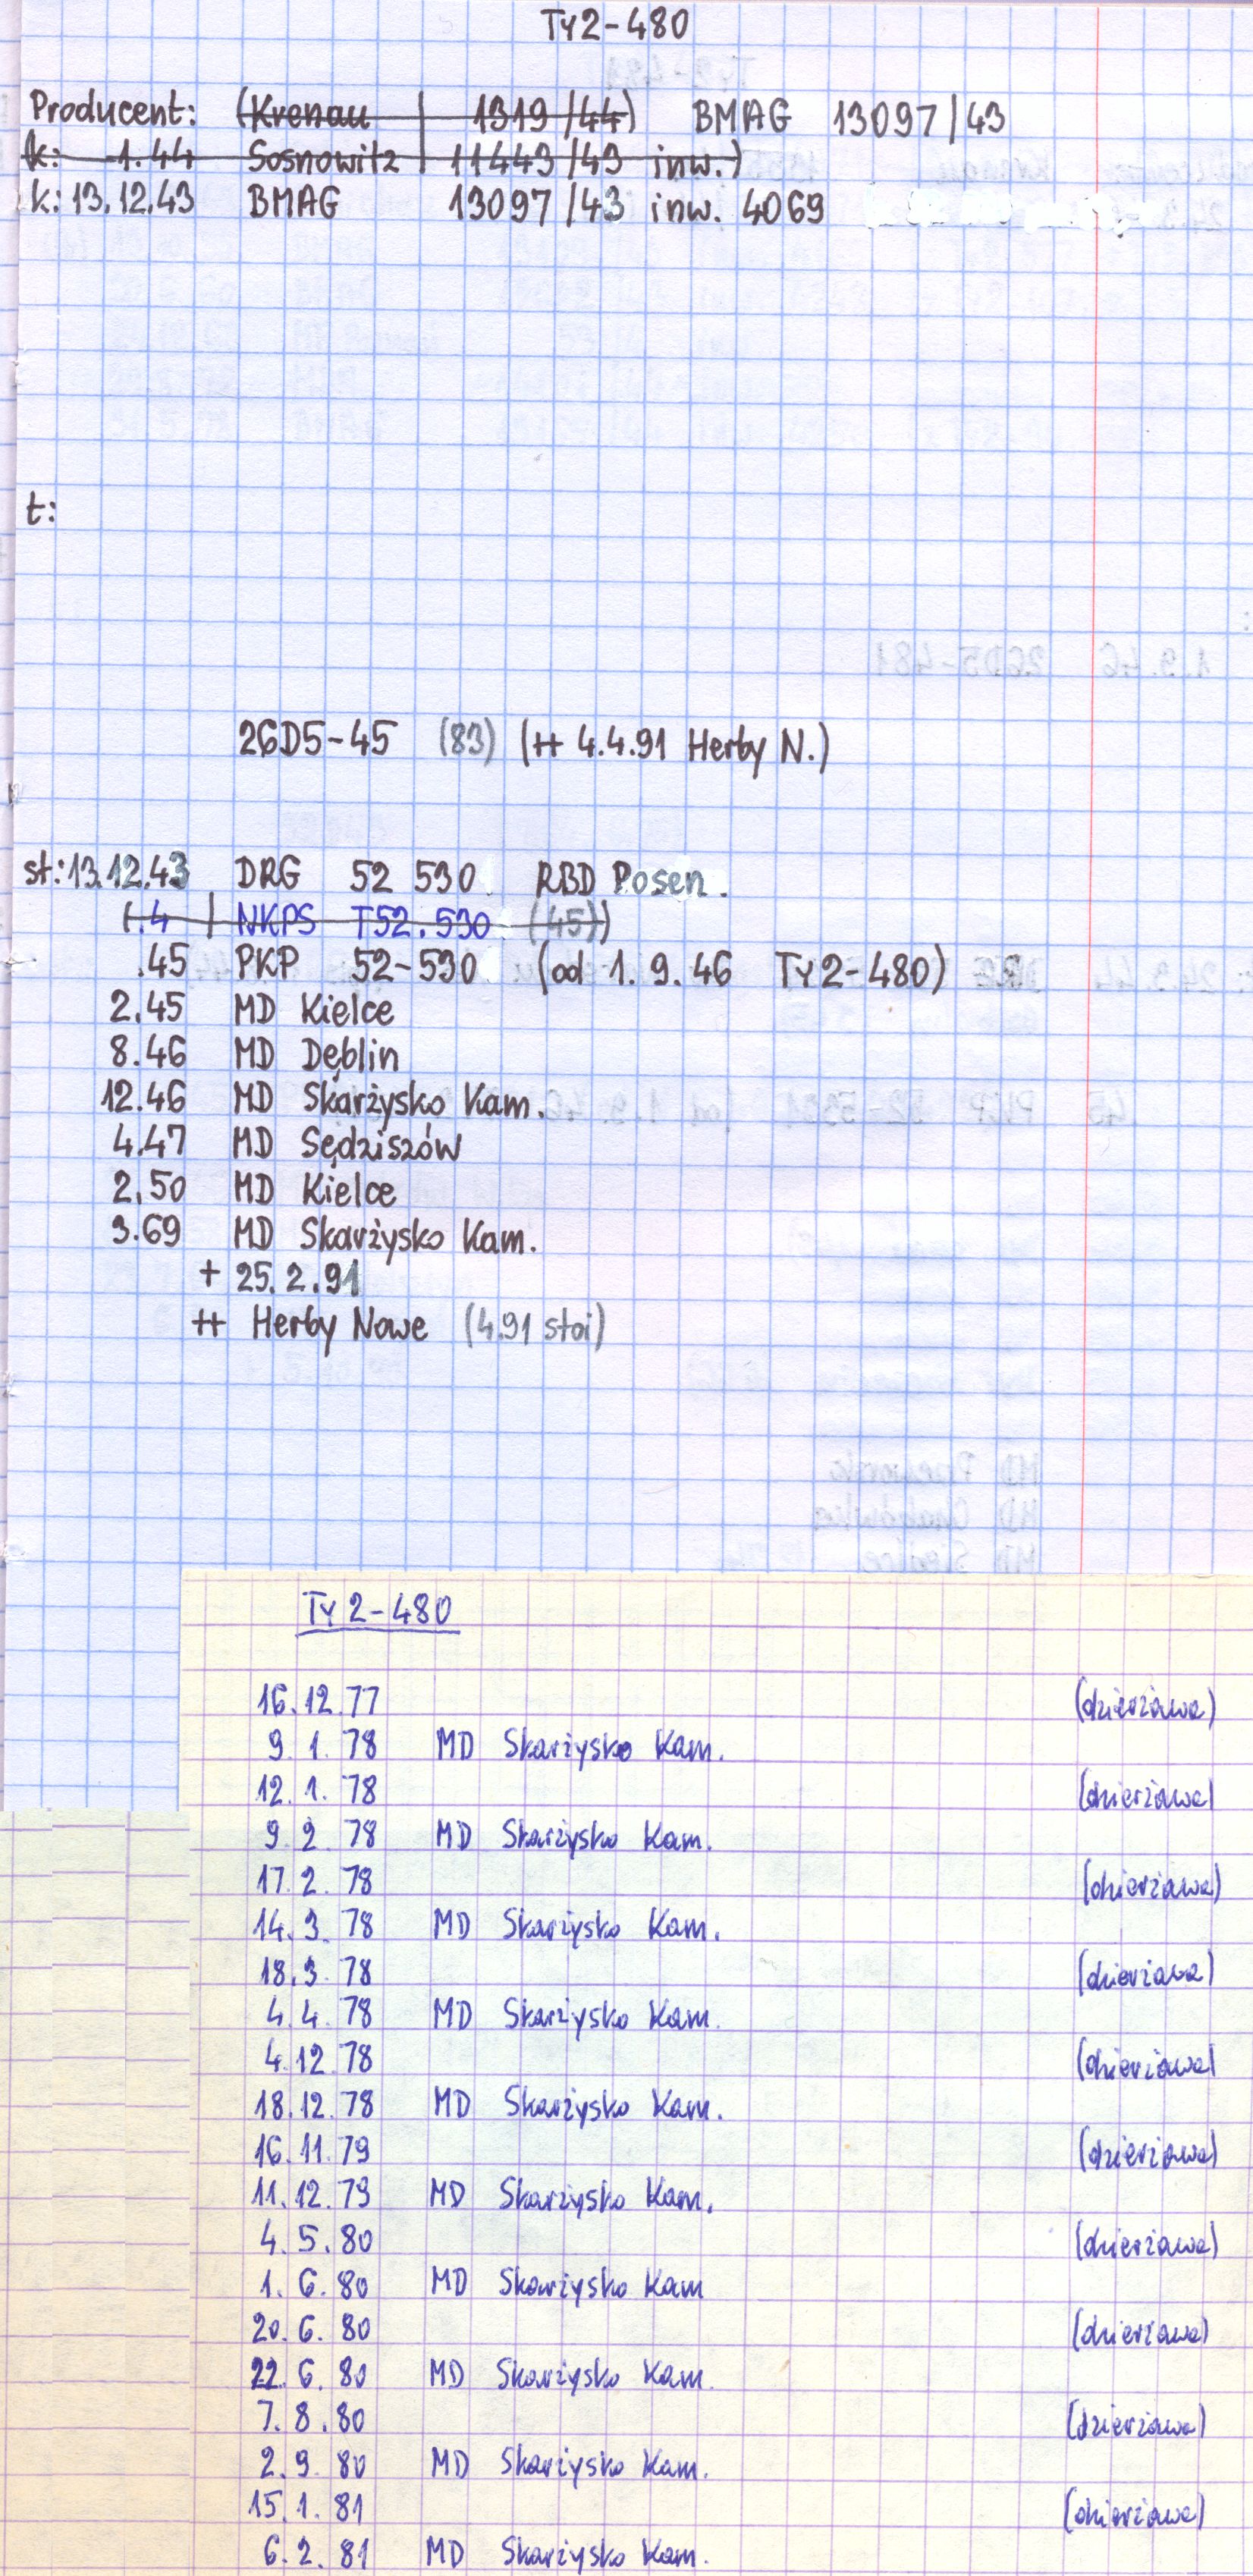 Ty2-480
Producent: (Krenau 1319/44) BMAG 13097/43
(k: -1.44 Sosnowitz 11443/43 inw.)
k: 13.12.43 BMAG 13097/43 inw. 4069
t:
26D5-45 (83) (++ 4.4.91 Herby N.)
st: 13.12.43 DRG 52 530 RBD Posen.
(.4 NKPS T52.530 (45))
.45 PKP 52-530 (od 1.9.46 Ty2-480)
2.45 MD Kielce
8.46 MD Dęblin
12.46 MD Skarżysko Kam.
4.47 MD Sędziszów
2.50 MD Kielce
3.69 MD Skarżysko Kam.
+ 25.2.91
++ Herby Nowe (4.91 stoi)
Ty2-480
16.12.77 (dzierżawa)
9.1.78 MD Skarżysko Kam.
12.1.78 (dzierżawa)
9.2.78 MD Skarżysko Kam.
17.2.78 (dzierżawa)
14.3.78 MD Skarżysko Kam.
18.3.78 (dzierżawa)
4.4.78 MD Skarżysko Kam.
4.12.78 (dzierżawa)
18.12.78 MD Skarżysko Kam.
16.11.79 (dzierżawa)
11.12.79 MD Skarżysko Kam.
4.5.80 (dzierżawa)
1.6.80 MD Skarżysko Kam
20.6.80 (dzierżawa)
22.6.80 MD Skarżysko Kam.
7.8.80 (dzierżawa)
2.9.80 MD Skarżysko Kam.
15.1.81 (dzierżawa)
6.2.81 MD Skarżysko Kam.